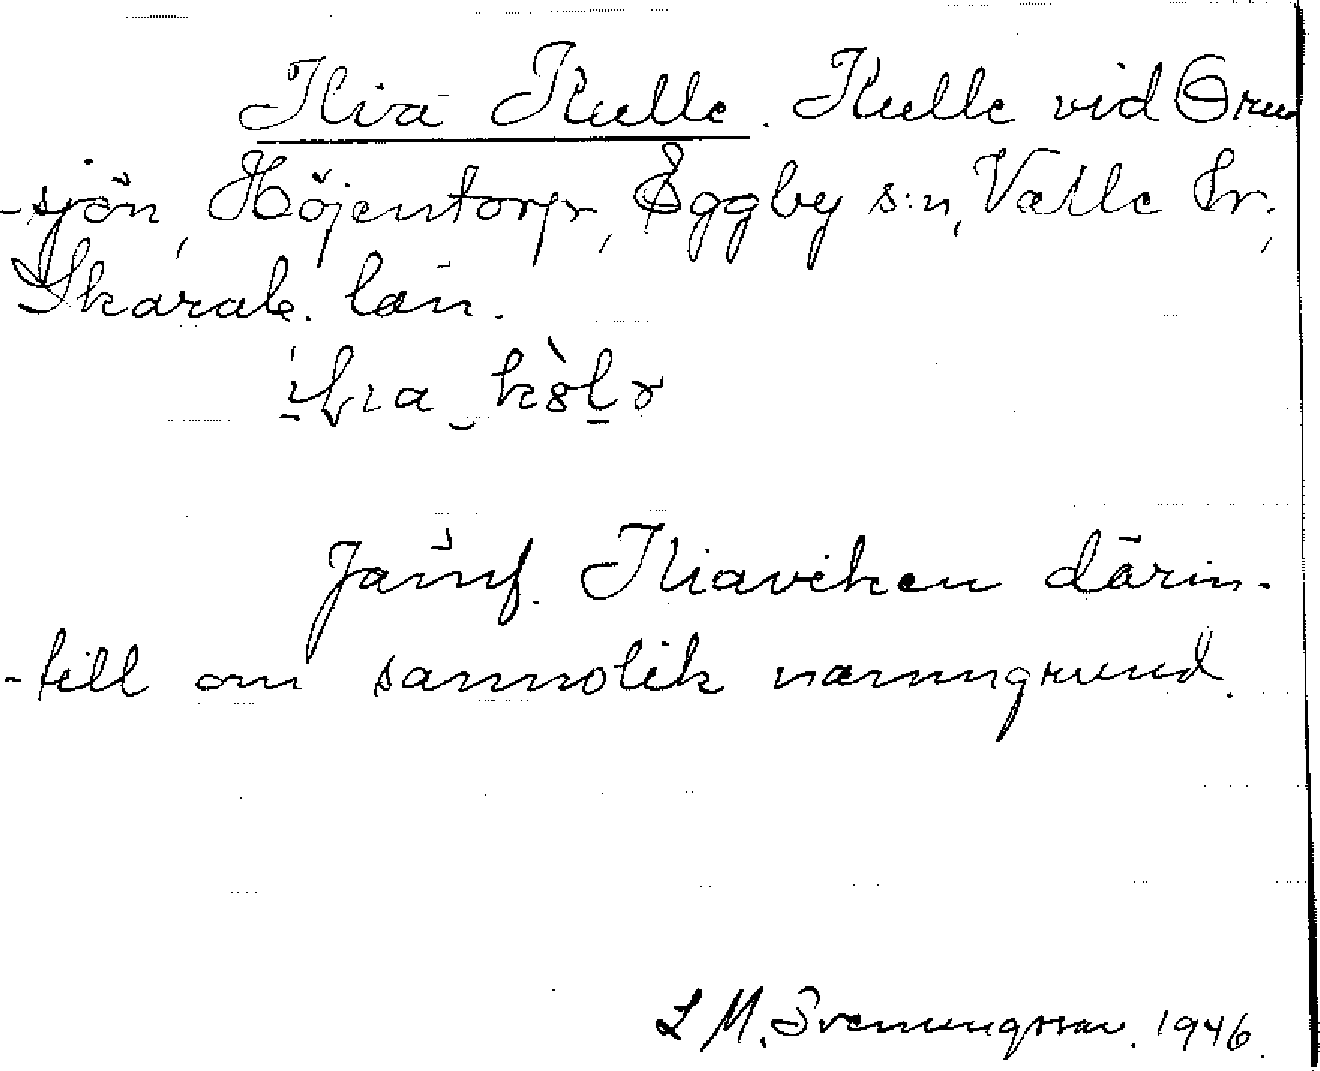 Kira Kulle. Kulle vid Orm
-sjön, Höjentorp, Eggby s:n, Valle hr,
Skarab. län.
Jämf. Kiaviken därin-
-till om sannolik namngrund.
L M. Svenungsson. 1946.